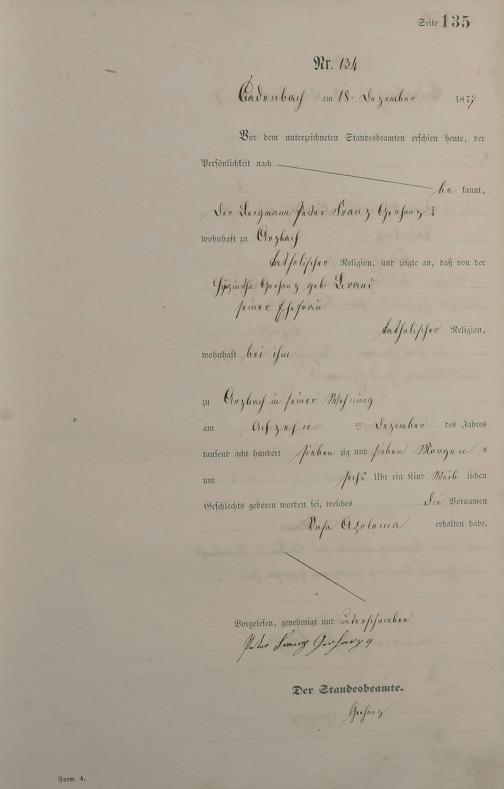 Seite 135
Nr. 134
Cadenbach am 18. Dezember 1877
Vor dem unterzeichneten Standesbeamten erschien heute, der
Persönlichkeit nach
be kannt,
Der Bergmann Peter Franz Gerharz 4
wohnhaft zu Arzbach
katholischer Religion, und zeigte an, daß von der
Gerharz geb.
seiner Ehefrau
katholischer Religion,
wohnhaft bei ihm
zu Arzbach in seiner Wohnung
am Achzehn ten Dezember des Jahres
tausend acht hundert sieben zig und sieben Morgen s
um sechs Uhr ein Kind Weib lichen
Geschlechts geboren worden sei, welches die Vornamen
Rosa erhalten habe.
Vorgelesen, genehmigt und unterschrieben
Peter Franz Gerharz 4
Der Standesbeamte.
Gerharz
Form. A.